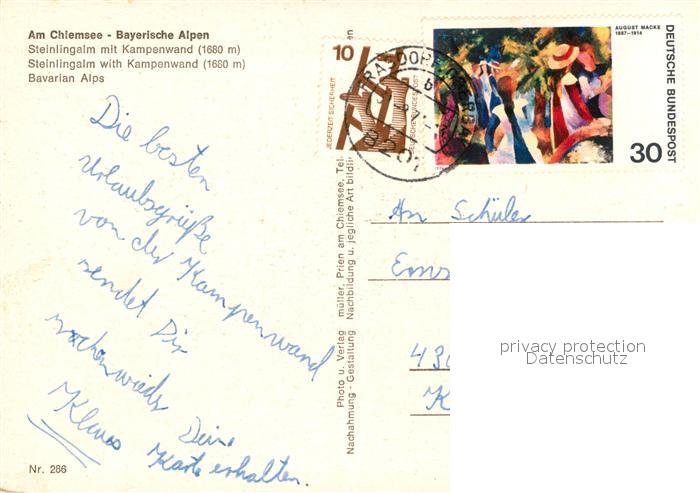 Am Chiemsee - Bayerische Alpen
Steinlingalm mit Kampenwand (1680 m)
Steinlingalm with Kampenwand (1680 m)
Bavarian Alps
Die besten
Urlaubsgrüße
von der Kampenwand
sendet Dir
Klaus
Karte erhalten.
Nr. 286
Photo u. Verlag
müller, Prien am Chiemsee, Tel.
Nachahmung - Gestaltung
Nachbildung u. jegliche Art bildli
en
10
JEDERZEIT SICHERHEIT
DEUTSCHE BUNDESPOST
8201
AUGUST MACKE
1887-1914
DEUTSCHE BUNDESPOST
30
An Schüler
Erns
430
K
privacy protection
Datenschutz